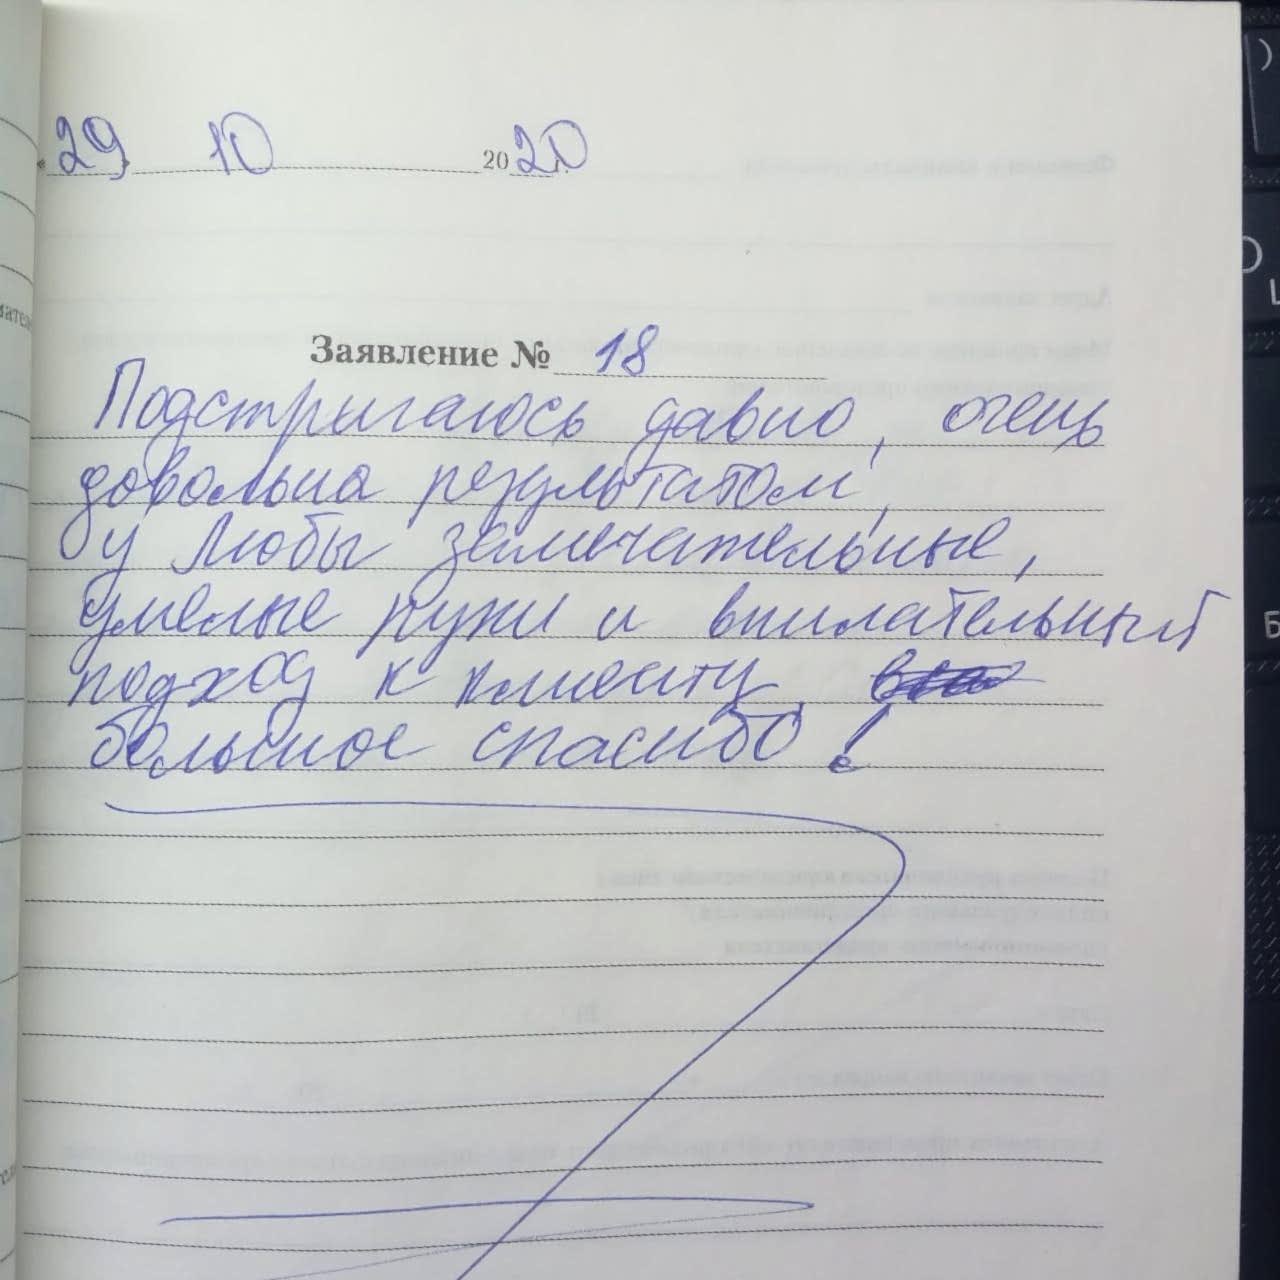 «29» 10 2020
Заявление № 18
Подстригаюсь давно, очень
довольна результатом,
у Любы замечательные,
умелые руки и внимательный
подход к клиенту,
большое спасибо!